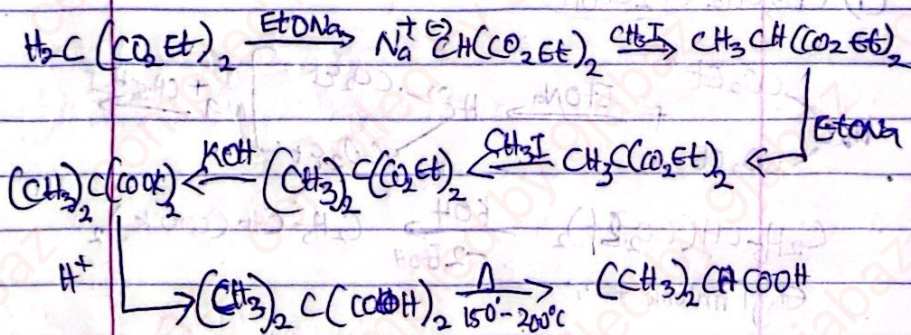 H₂C(CO₂Et)₂ —EtONa→ Na⁺ ⊖CH(CO₂Et)₂ —CH₃I→ CH₃CH(CO₂Et)₂
EtONa
(CH₃)₂C(COOK)₂ ←KOH— (CH₃)₂C(CO₂Et)₂ ←CH₃I— CH₃C(CO₂Et)₂ ←
H⁺ → (CH₃)₂C(COOH)₂ —Δ 150°-200°C→ (CH₃)₂CHCOOH